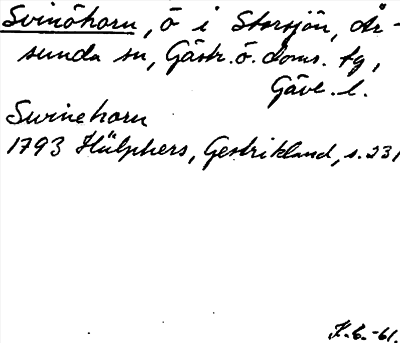 Svinöhorn, ö i Storsjön, År-
sunda sn, Gästr. ö. doms. tg,
Gävl. l.
Swinehorn
1793 Hülphers, Gestrikland, s. 231
K.G. -61.